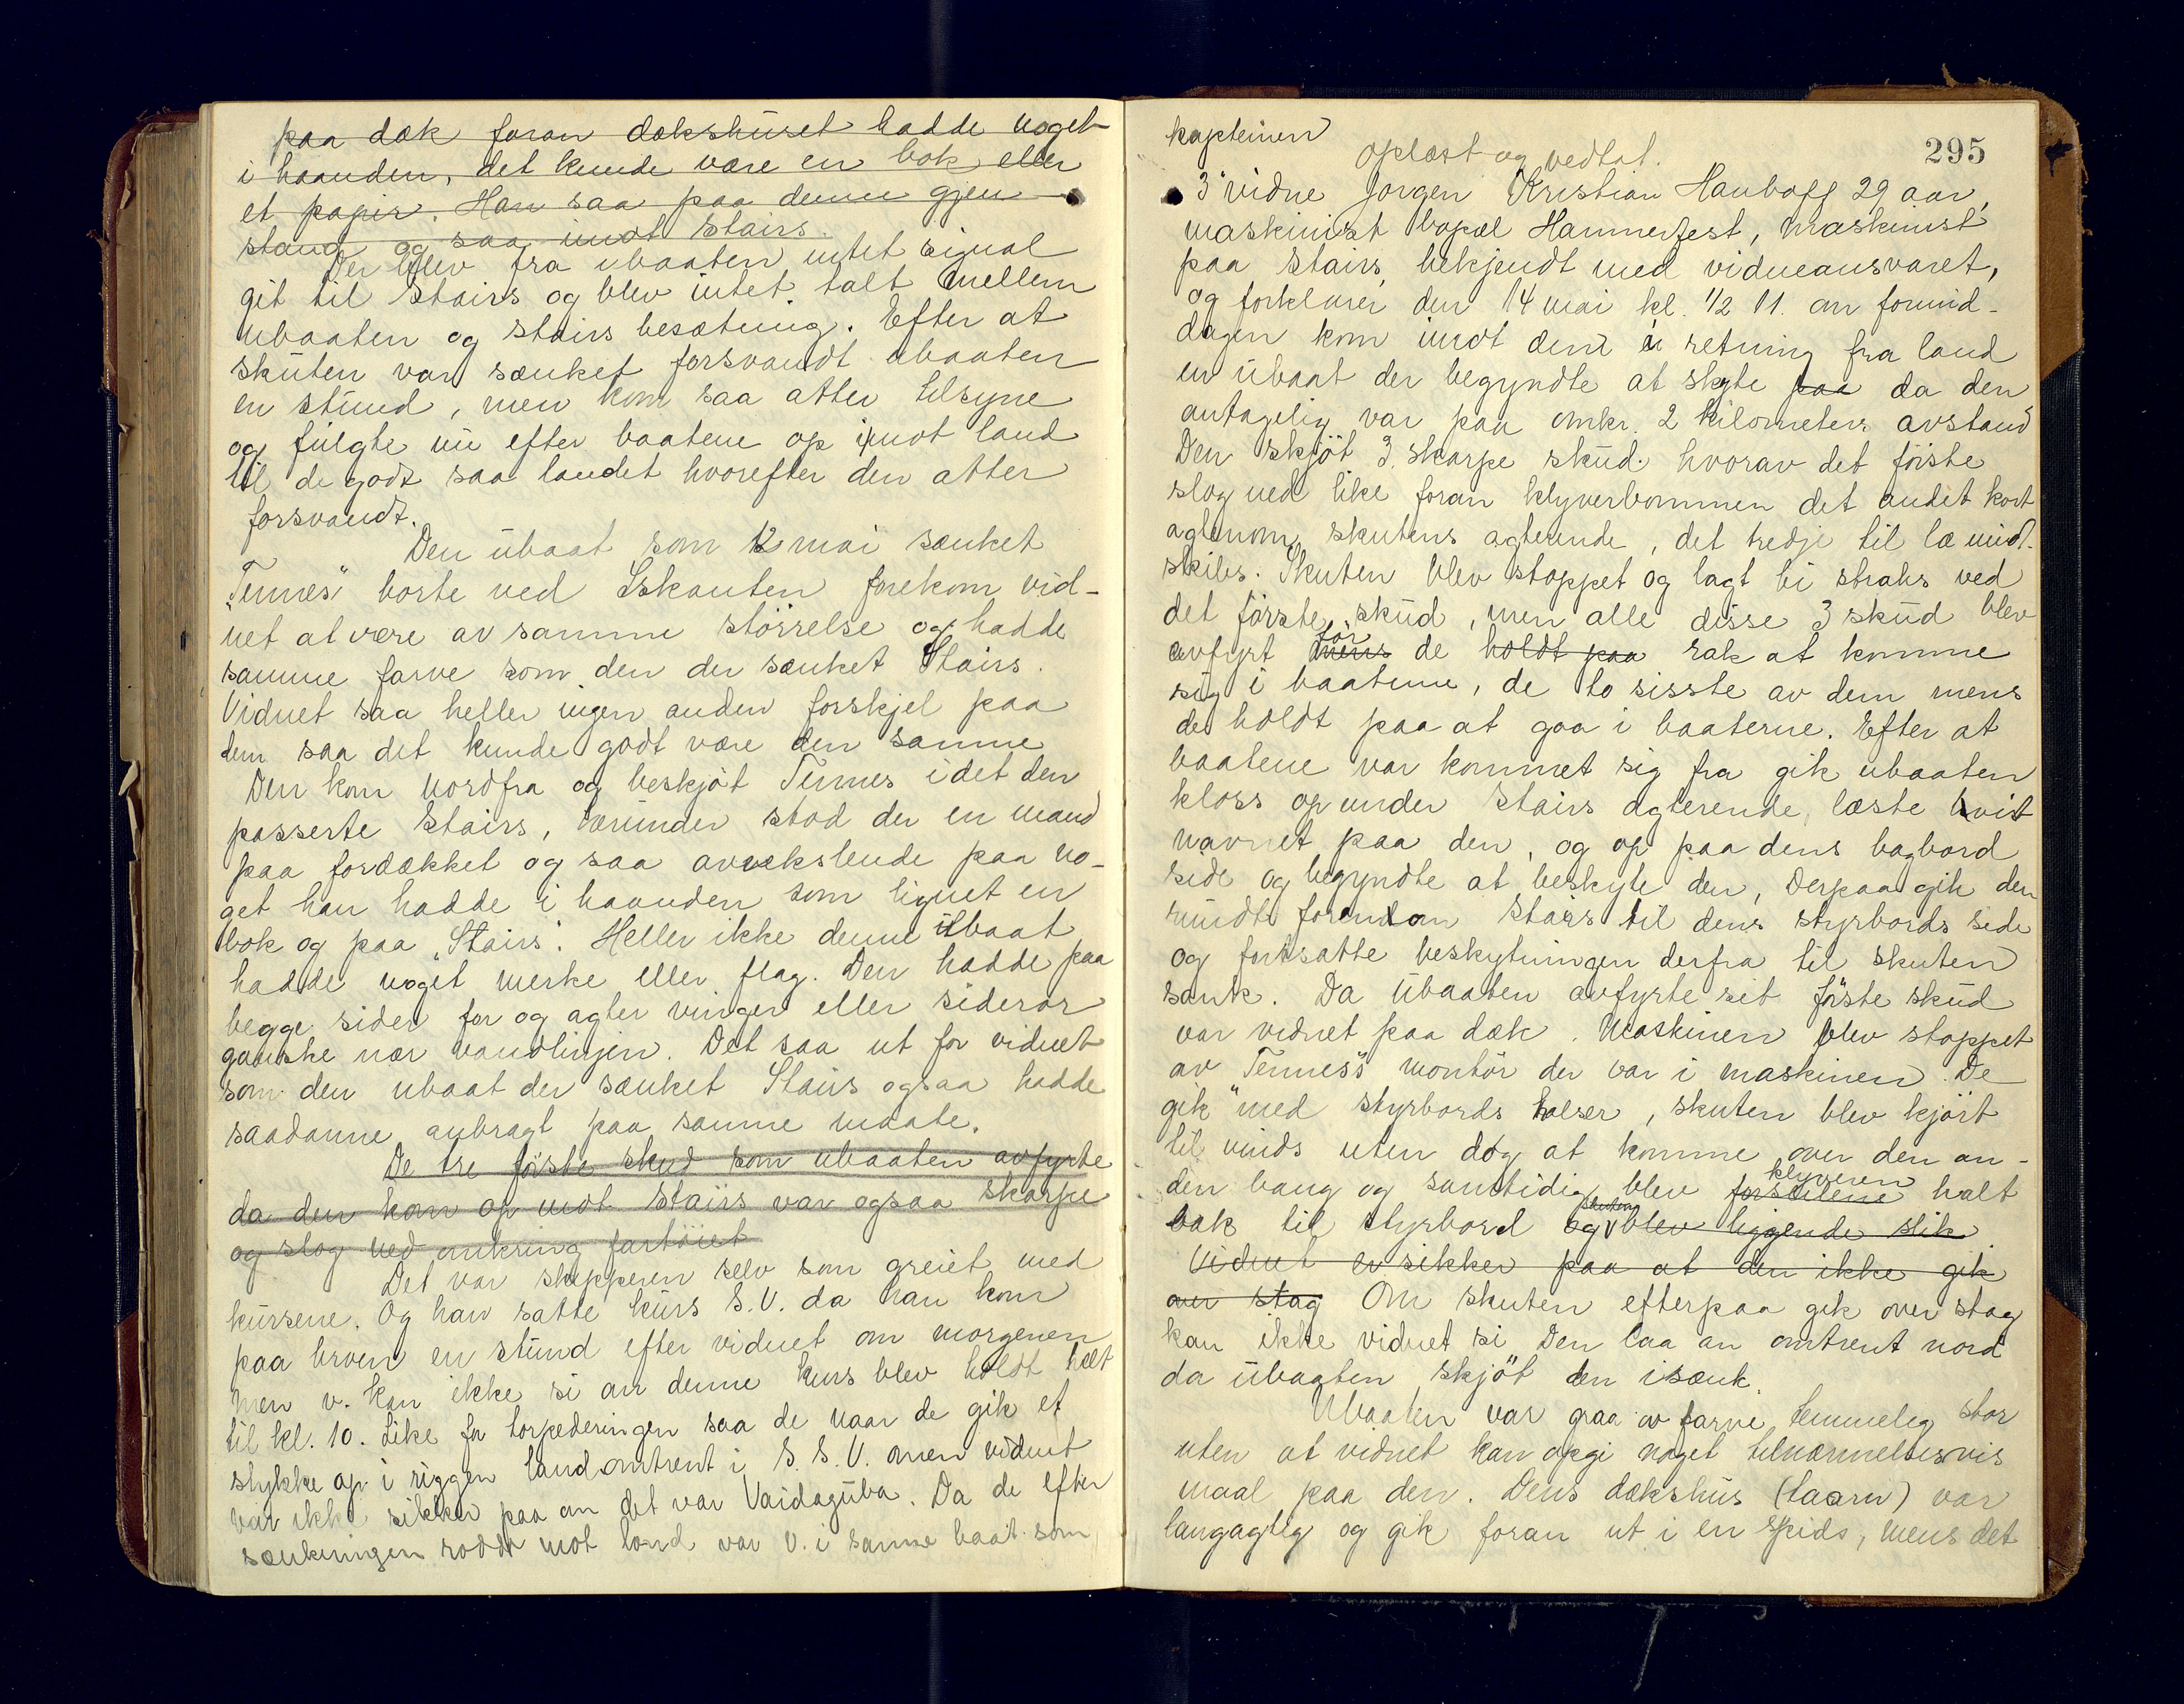 paa dæk foran dækshuset hadde noget
i haanden, det kunde være en bok eller
et papir. Han saa paa denne gjen-
stand og saa imot Stairs.
Der blev fra ubaaten intet signal
git til Stairs og blev intet talt mellem
ubaaten og Stairs besætning. Efter at
skuten var sænket forsvandt ubaaten
en stund, men kom saa atter tilsyne
og fulgte nu efter baatene op imot land
til de godt saa landet hvorefter den atter
forsvandt.
Den ubaat som 12 mai sænket
"Tennes" borte ved Iskanten forekom vid-
net at være av samme störrelse og hadde
samme farve som den der sænket Stairs.
Vidnet saa heller ingen anden forskjel paa
dem saa det kunde godt være den samme
Den kom nordfra og beskjöt Tennes idet den
passerte Stairs, herunder stod der en mand
paa fordækket og saa avvekslende paa no-
get han hadde i haanden som lignet en
bok og paa "Stairs". Heller ikke denne ubaat
hadde noget merke eller flag. Den hadde paa
begge sider for og agter vinger eller sideror
ganske nær vandlinjen. Det saa ut for vidnet
som den ubaat der sænket Stairs ogsaa hadde
saadanne anbragt paa samme maate.
De tre förste skud som ubaaten avfyrte
da den kom op mot Stairs var ogsaa skarpe
og slog ned omkring fartöiet
Det var skipperen selv som greiet med
kursene. Og han satte kurs S.V. da han kom
paa broen en stund efter vidnet om morgenen
men v. kan ikke si om denne kurs blev holdt helt
til kl. 10. Like før torpederingen saa de naar de gik et
stykke op i riggen land omtrent i S.S.V. men vidnet
var ikke sikker paa om det var Vaidaguba. Da de efter
sænkningen rodde mot land var v. i samme baat som
kapteinen
oplæst og vedtat.
295
3' vidne Jorgen Kristian Hauboff 29 aar,
maskinist bopæl Hammerfest, maskinist
paa Stairs, bekjendt med vidneansvaret,
og forklarer den 14 mai kl. 1/2 11. om formid-
dagen kom imot dem i retning fra land
en ubaat der begyndte at skyte paa da den
antagelig var paa omkr. 2 kilometers avstand
Den skjöt 3. skarpe skud. hvorav det förste
slog ned like foran klyverbommen det andet kort
agtenom skutens agterende, det tredje til læ mid-
skibs. Skuten blev stoppet og lagt bi straks ved
det förste skud, men alle disse 3 skud blev
avfyrt mens för de holdt paa rak at komme
sig i baatene, de to sisste av dem mens
de holdt paa at gaa i baaterne. Efter at
baatene var kommet sig fra gik ubaaten
kloss op under Stairs agterende, læste hvist
navnet paa den, og op paa dens bagbord
side og begyndte at beskyte den, Derpaa gik den
rundt forenom Stairs til dens styrbords side
og fortsatte beskytningen derfra til skuten
sank. Da Ubaaten avfyrte sit förste skud
var vidnet paa dæk. Maskinen blev stoppet
av "Tennes's" montör der var i maskinen. De
gik med styrbords halser, skuten blev kjört
til vinds uten dog at komme over den an-
den baug og samtidig blev forseilene klyveren halt
bak til styrbord og skuten blev liggende slik
Vidnet er sikker paa at den ikke gik
over stag Om skuten efterpaa gik over stag
kan ikke vidnet si Den laa an omtrent nord
da ubaaten skjöt den isænk.
Ubaaten var graa av farve temmelig stor
uten at vidnet kan opgi noget tilnærmelsesvis
maal paa den. Dens dækshus (taarn) var
langagtig og gik foran ut i en spids, mens det